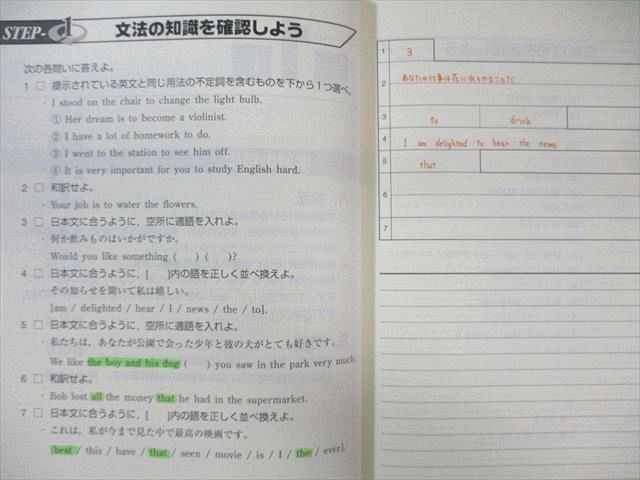 STEP-1 文法の知識を確認しよう
次の各問いに答えよ。
1 □ 提示されている英文と同じ用法の不定詞を含むものを下から1つ選べ。
・I stood on the chair to change the light bulb.
① Her dream is to become a violinist.
② I have a lot of homework to do.
③ I went to the station to see him off.
④ It is very important for you to study English hard.
2 □ 和訳せよ。
・Your job is to water the flowers.
3 □ 日本文に合うように，空所に適語を入れよ。
・何か飲みものはいかがですか。
Would you like something (　) (　)?
4 □ 日本文に合うように，[　]内の語を正しく並べ換えよ。
・その知らせを聞いて私は嬉しい。
[am / delighted / hear / I / news / the / to].
5 □ 日本文に合うように，空所に適語を入れよ。
・私たちは，あなたが公園で会った少年と彼の犬がとても好きです。
We like the boy and his dog (　) you saw in the park very much.
6 □ 和訳せよ。
・Bob lost all the money that he had in the supermarket.
7 □ 日本文に合うように，[　]内の語を正しく並べ換えよ。
・これは，私が今まで見た中で最高の映画です。
[best / this / have / that / seen / movie / is / I / the / ever].
1 3
2 あなたの仕事は花に水をやることだ
3 to drink
4 I am delighted to hear the news
5 that
6
7